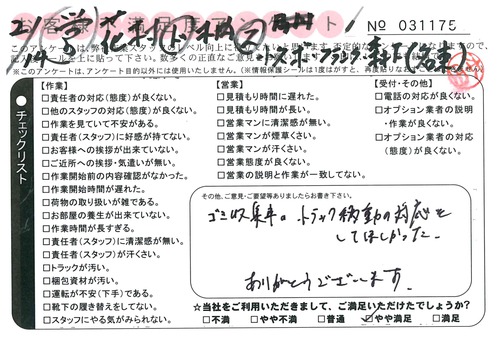 お客様
No 031175
21/
チェックリスト
【作業】
□責任者の対応(態度)が良くない。
□他のスタッフの対応(態度)が良くない。
□作業を見ていて不安がある。
□責任者(スタッフ)に好感が持てない。
□お客様への挨拶が出来ていない。
□ご近所への挨拶・気遣いが無い。
□作業開始前の内容確認がなかった。
□作業開始時間が遅れた。
□荷物の取り扱いが雑である。
□お部屋の養生が出来ていない。
□作業時間が長すぎる。
□責任者(スタッフ)に清潔感が無い。
□責任者(スタッフ)が汗くさい。
□トラックが汚い。
□梱包資材が汚い。
□運転が不安(下手)である。
□靴下の履き替えをしてない。
□スタッフにやる気がみられない。
【営業】
□見積もり時間に遅れた。
□見積もり時間が長い。
□営業マンに清潔感が無い。
□営業マンが煙草くさい。
□営業マンが汗くさい。
□営業態度が良くない。
□営業の説明と作業が一致してない。
【受付・その他】
□電話の対応が良くない。
□オプション業者の説明
・作業が良くない。
□オプション業者の対応
(態度)が良くない。
その他、ご意見・ご要望等ありましたらお書き下さい。
ゴミ収集車のトラック移動の対応を
してほしかった。
ありがとうございます。
☆当社をご利用いただきまして、ご満足いただけたでしょうか?
□不満 □やや不満 □普通 ☑やや満足 □満足